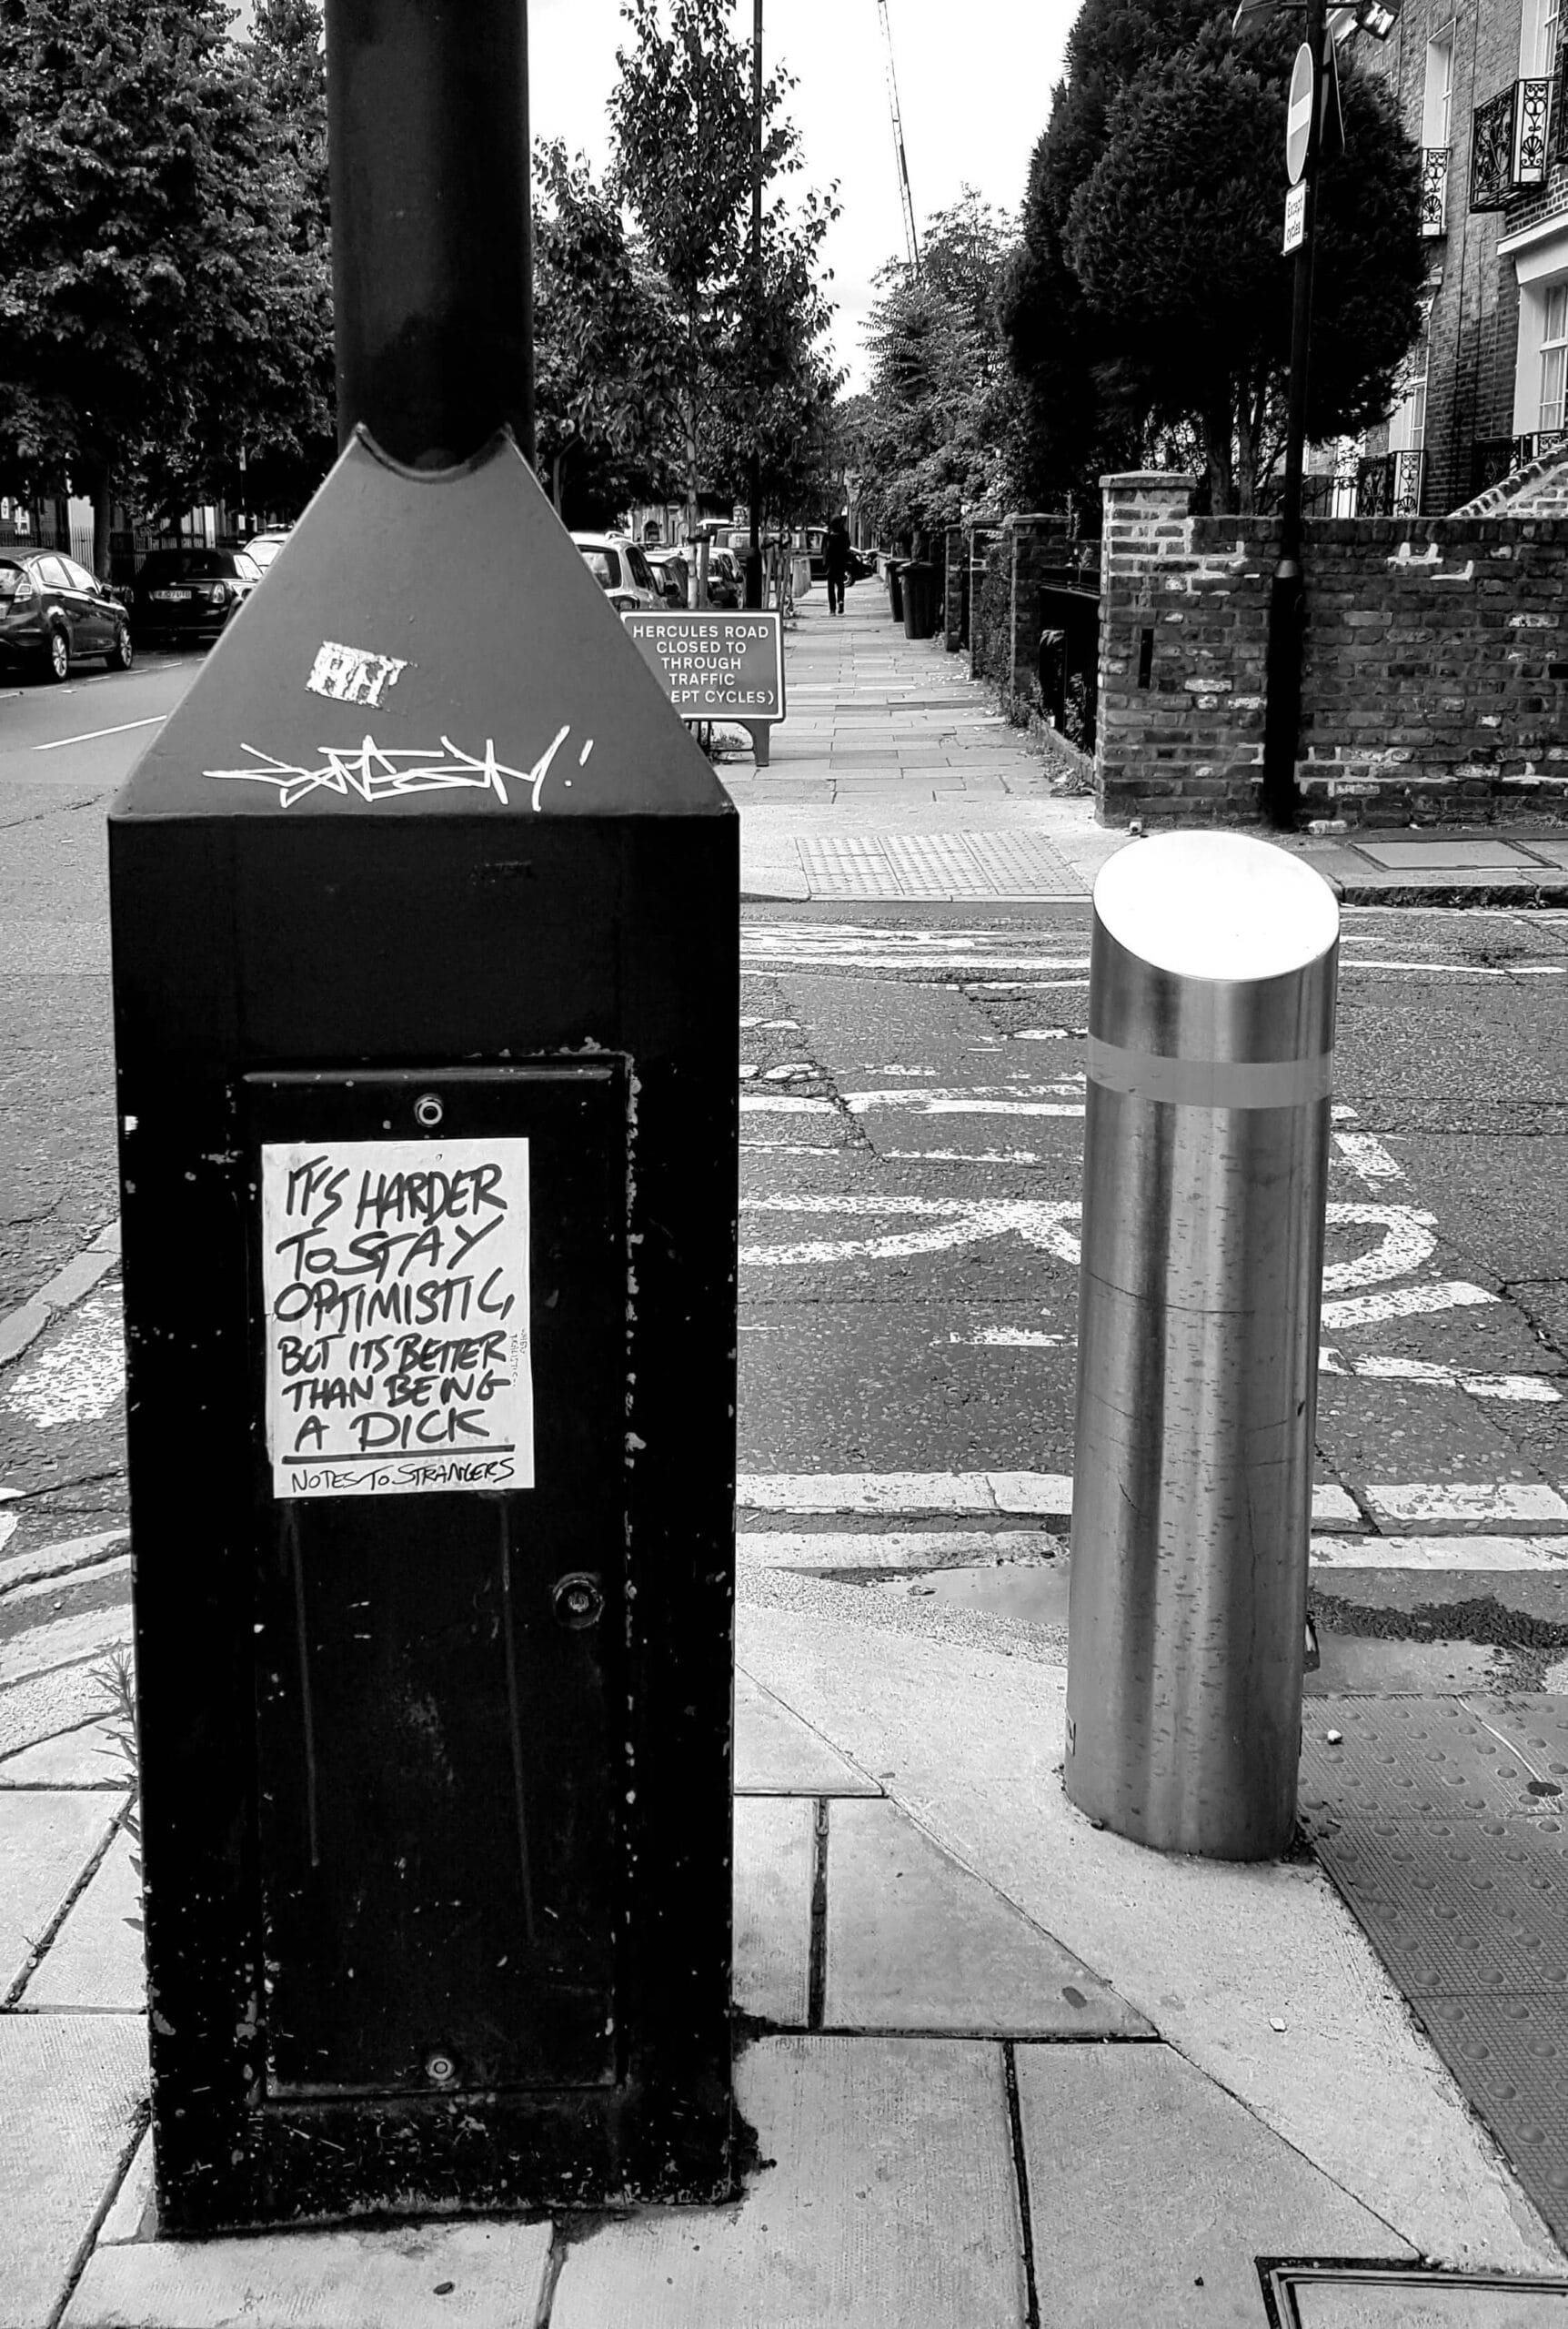 Except
cycles
HERCULES ROAD
CLOSED TO
THROUGH
TRAFFIC
EPT CYCLES)
IT'S HARDER
TO STAY
OPTIMISTIC,
BUT ITS BETTER
THAN BEING
A DICK
NOTES TO STRANGERS